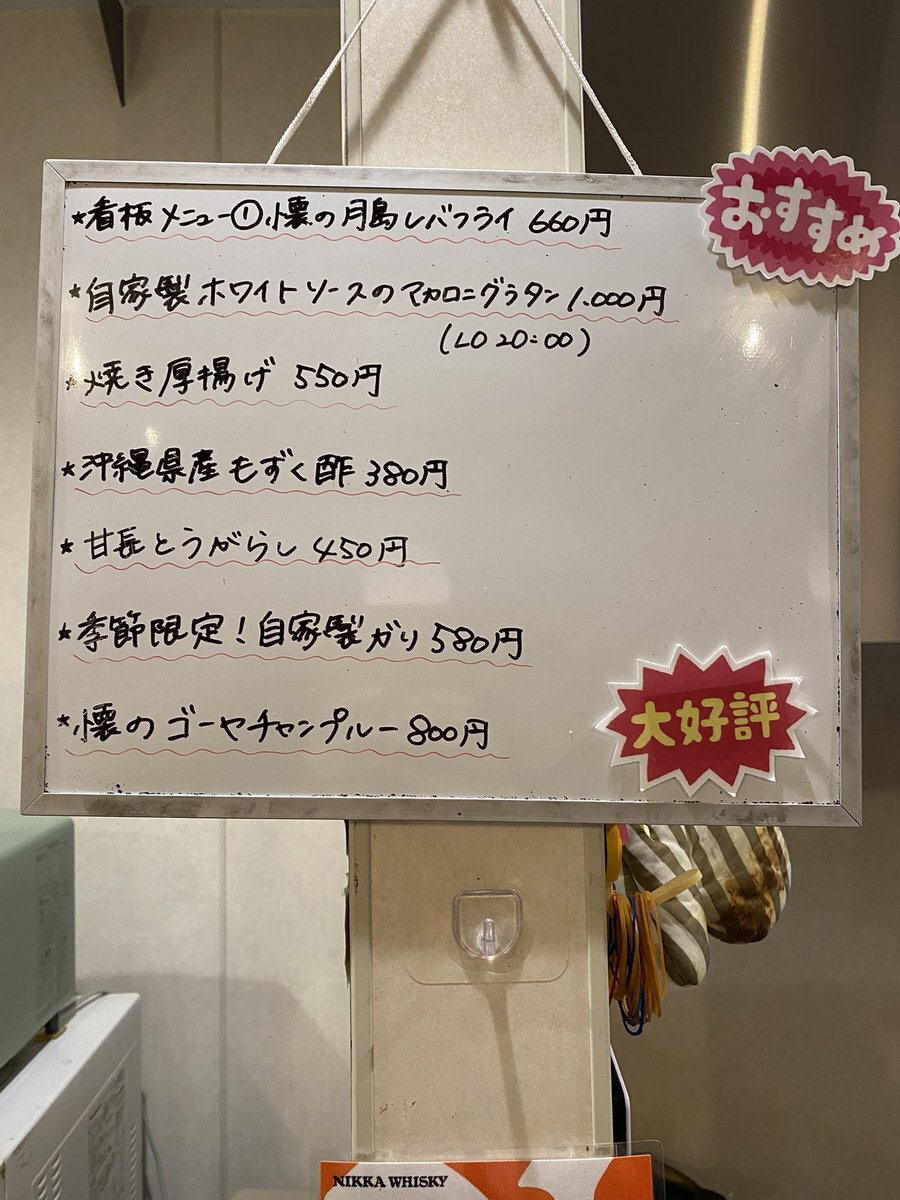 おすすめ
*看板メニュー①懐の月島レバフライ 660円
*自家製ホワイトソースのマカロニグラタン 1.000円
(LO 20:00)
*焼き厚揚げ 550円
*沖縄県産もずく酢 380円
*甘長とうがらし 450円
*季節限定!自家製ガリ 580円
*懐のゴーヤチャンプルー 800円
大好評
NIKKA WHISKY